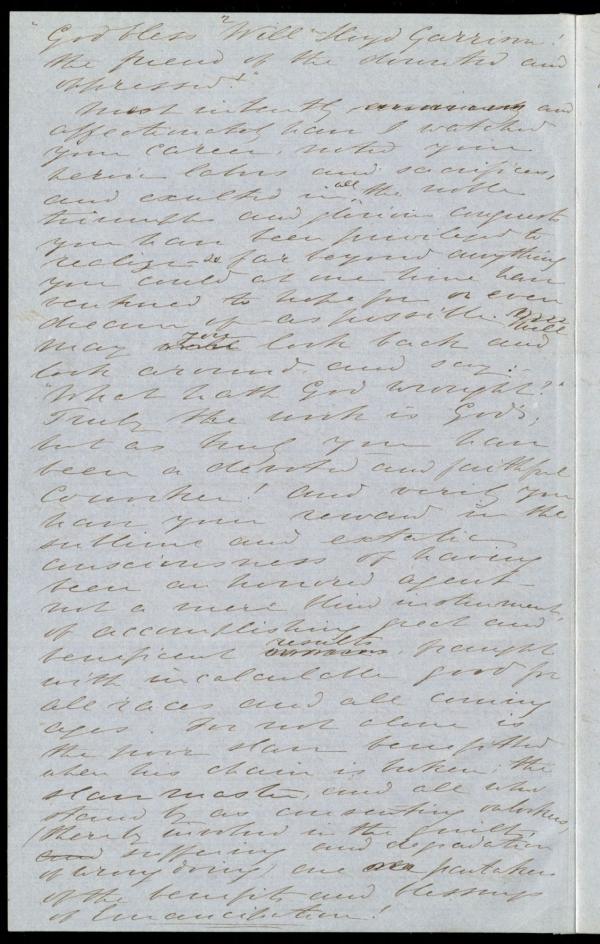 "God bless "Will" Lloyd Garrison!
the friend of the downtrod and
oppressed!"
Most intently and
affectionately have I watched
your career, noted your
heroic labors and sacrifices,
and exulted in all the noble
triumphs and glorious conquests
you have been privileged to
realize — so far beyond anything
you could at one time have
ventured to hope for or even
dream of as possible. Well
may you look back and
look around and say:
"What hath God wrought?"
Truly the work is God's;
but as truly you have
been a devoted and faithful
coworker! And verily you
have your reward in the
sublime and extatic
consciousness of having
been an honored agent —
not a mere blind instrument,
of accomplishing great and
beneficent results, fraught
with incalculable good for
all races and all coming
ages. For not alone is
the poor slave benefitted
when his chain is broken; the
slavemaster, and all who
stand by as consenting onlookers,
(thereby involved in the guilt,
suffering and degradation
of wrong doing) are partakers
of the benefits and blessings
of Emancipation!